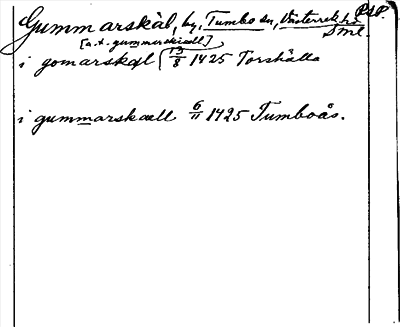 Gummarskäl, by, Tumbo sn, Västerrek. hd
PSP.
Sml.
[a.t. gummarskiædl]
i gomarskæl 13/8 1425 Torshälla
i gummarskæll 6/11 1425 Tumboås.